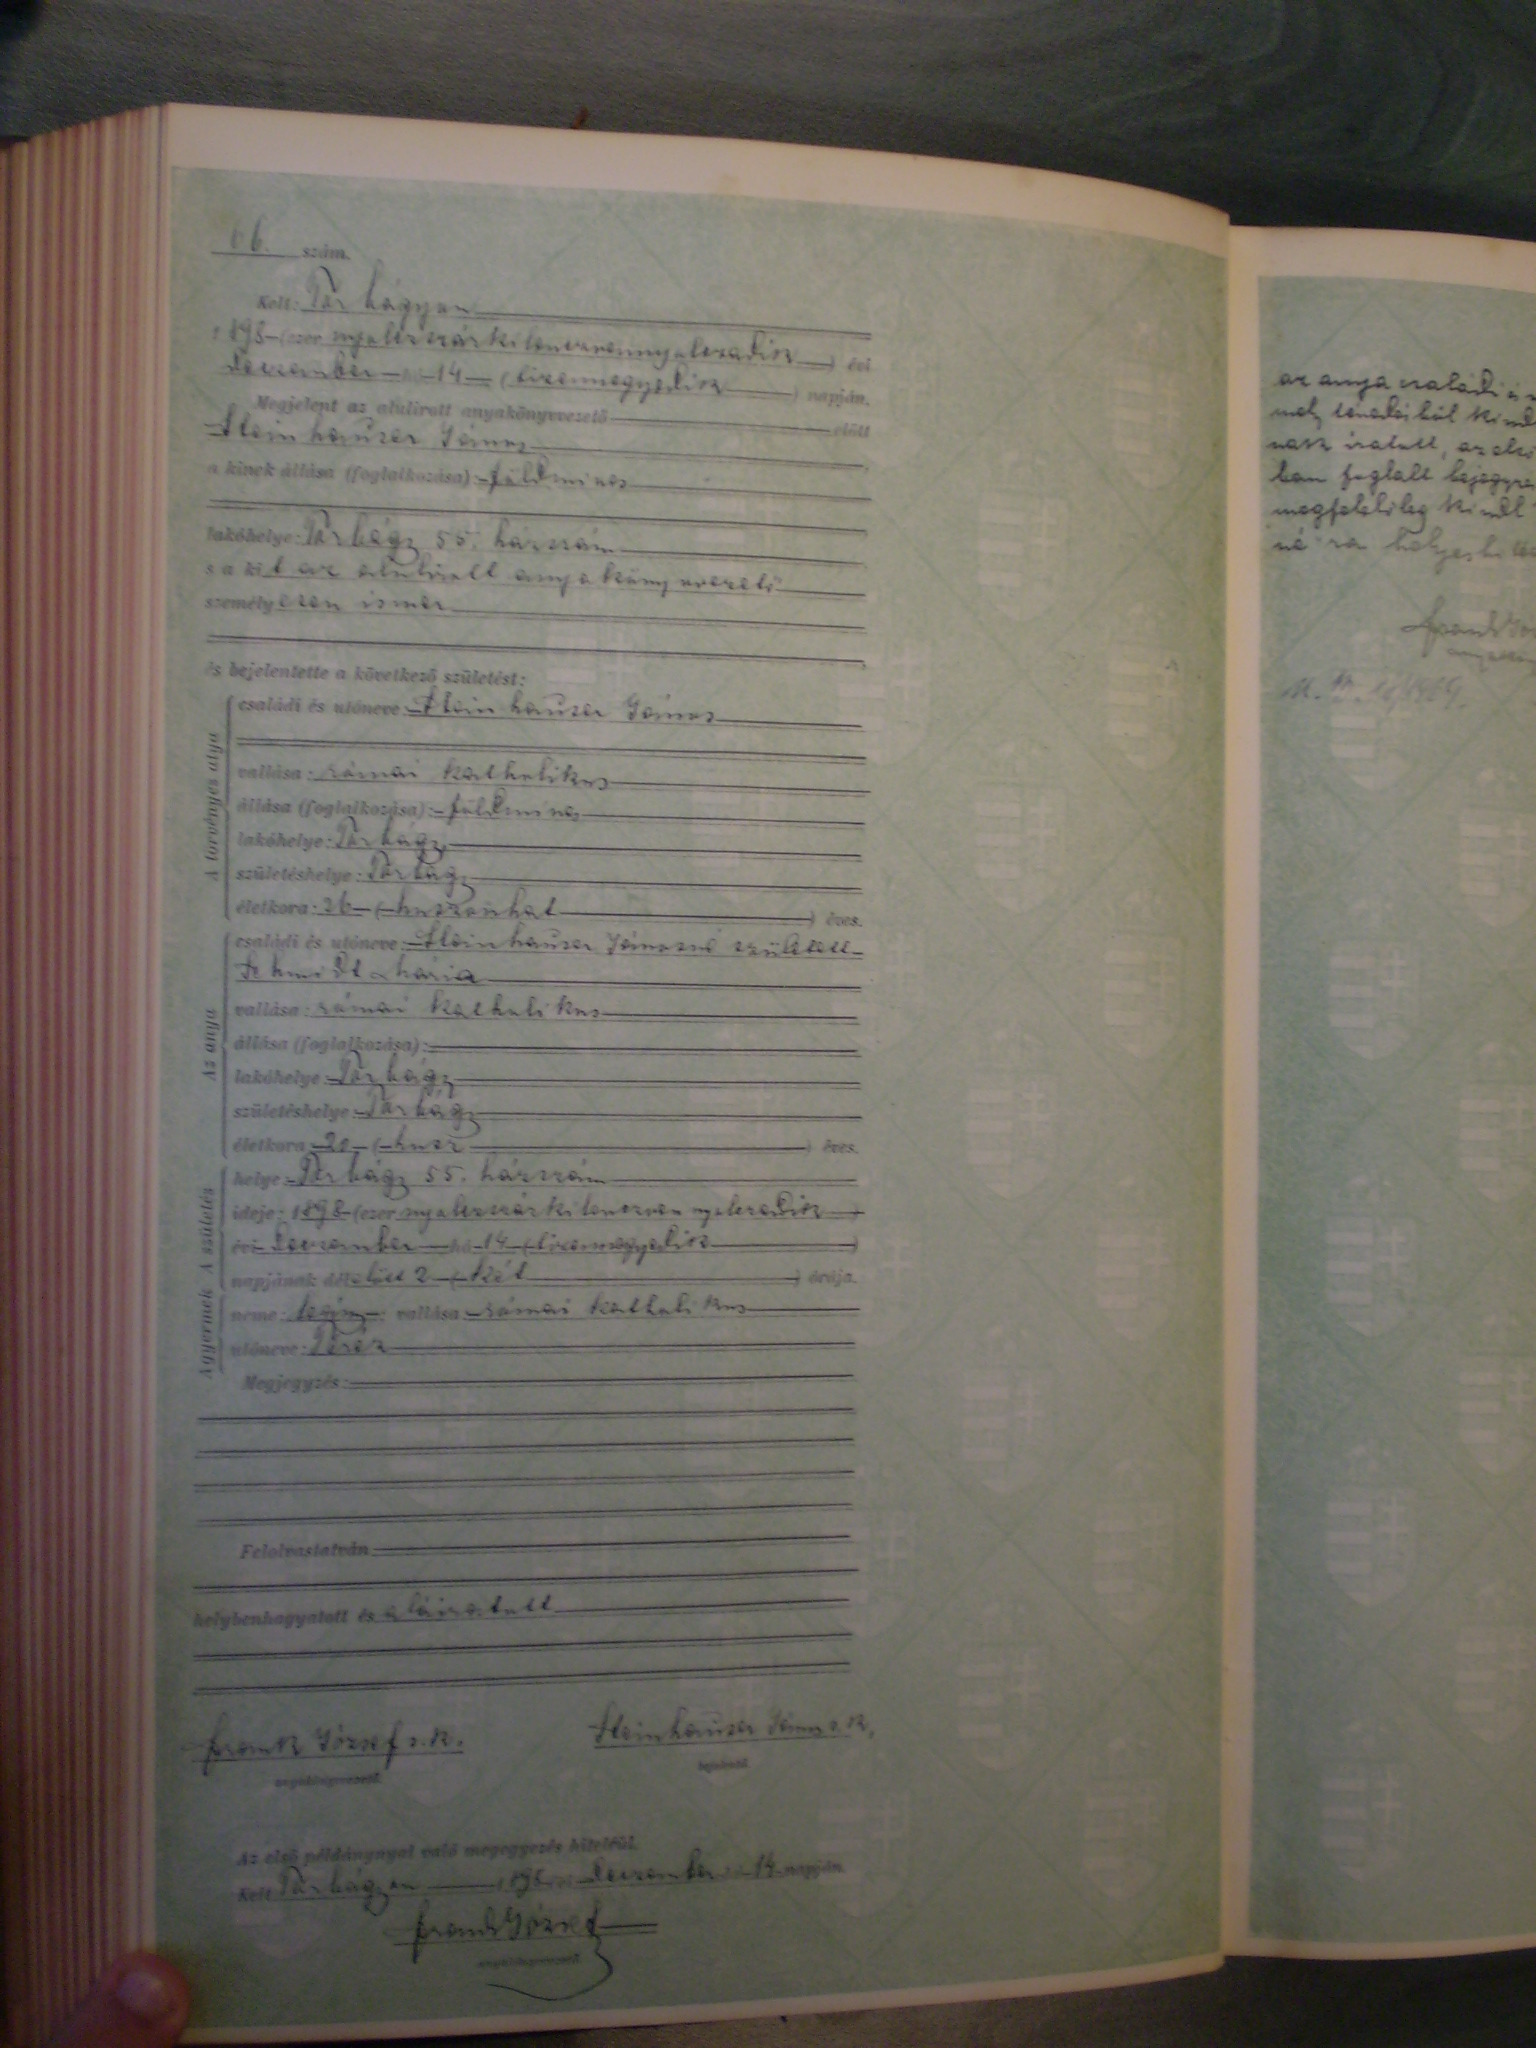 66. szám.
Kelt: Törbágyon
1898 (ezer nyolczszázkilenczvennyolczadik) évi
deczember hó 14 (tizennegyedik) napján.
Megjelent az alulirott anyakönyvvezető előtt
Steinhauser János
a kinek állása (foglalkozása): földmives
lakóhelye: Törbágy 55. házszám
s a kit az alulirott anyakönyvvezető
személyesen ismer
és bejelentette a következő születést:
A törvényes atya
családi és utóneve: Steinhauser János
vallása: római katholikus
állása (foglalkozása): földmives
lakóhelye: Törbágy
születéshelye: Törbágy
életkora: 26 (huszonhat) éves.
Az anya
családi és utóneve: Steinhauser Jánosné született
Schmidt Mária
vallása: római katholikus
állása (foglalkozása):
lakóhelye: Törbágy
születéshelye: Törbágy
életkora: 20 (husz) éves.
A születés
helye: Törbágy 55. házszám
ideje: 1898 (ezer nyolczszázkilenczvennyolczadik)
évi deczember hó 14 (tizennegyedik)
napjának délelőtt 2 (két) órája.
A gyermek
neme: leány vallása: római katholikus
utóneve: Teréz
Megjegyzés:
Felolvastatván
helybenhagyatott és aláiratott
Frank József s. k. Steinhauser János s. k.
anyakönyvvezető bejelentő
Az első példánynyal való megegyezés hiteléül.
Kelt Törbágyon 1898 évi deczember hó 14 napján.
Frank József
anyakönyvvezető
az anya családi és
ban foglalt
megfelelőleg
Frank